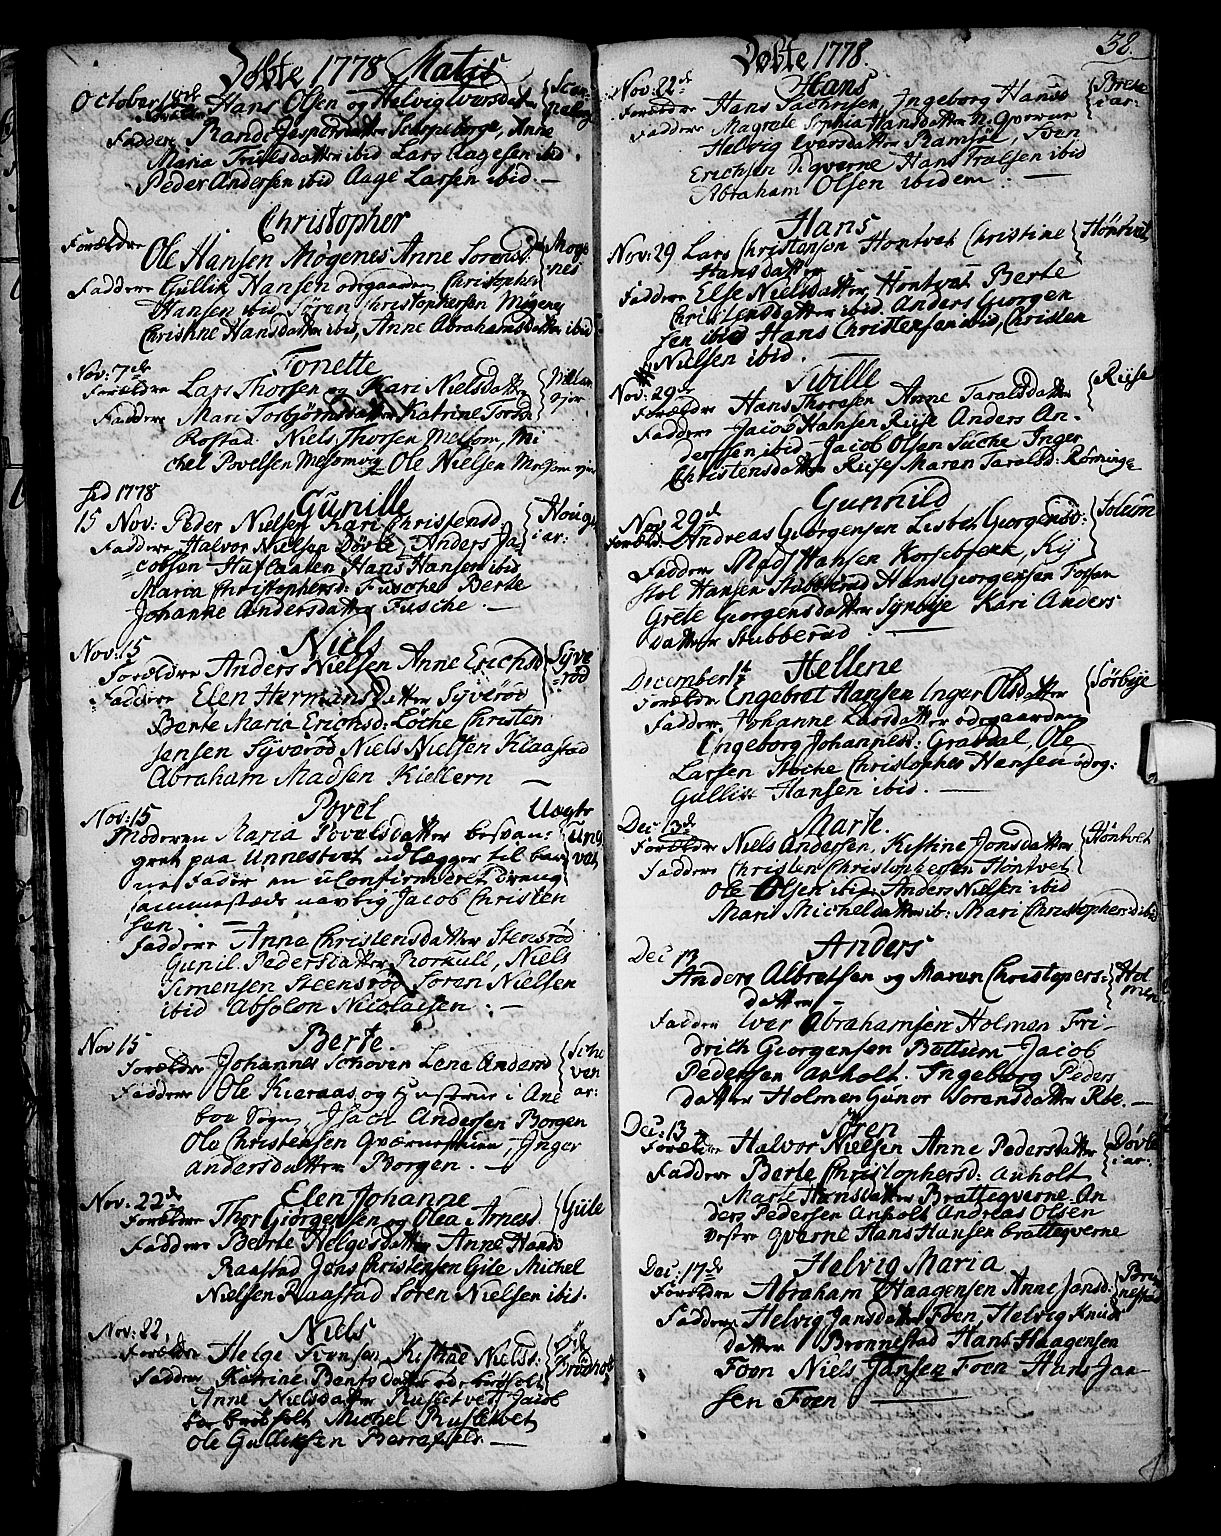 Döbte 1778 Matis
October 18de Hans Olsen og Helvig Iversdatter
Faddere Randi Jespersdatter Scorpeborge, Anne
Maria Truelsdatter ibid Lars Aagesen ibid.
Peder Andersen ibid Aage Larsen ibid. —
Christopher
Forældre Ole Hansen Møgenes Anne Sorens: Moge
nes
Faddere Gullik Hansen odegaarden, Christopher
Hansen ibid, Sören Christophersen Mögenes
Christine Hansdatter ibid, Anne Abrahamsdatter ibid
Tonette
Nov: 7de
Forældre Lars Thorsen og Kari Nielsdatter
Faddere Mari Torbjörnsdatter Katrine Tords
Rostad Niels Thorsen Melsom, Mi
chel Povelsen Mesom og Ole Nielsen
fed 1778
Gunille
15 Nov: Peder Nielsen Kari Christensd. Houge
iar:
Faddere Halvor Nielsen Døvle, Anders Ja
cobsen Hans Hansen ibid
Maria Christophersd: Fusche Berte
Johanne Andersdatter Fusche. —
Niels
Nov: 15
Forældre Anders Nielsen Anne Erichsd Syve
röd
Faddere Elen Hermansdatter Syveröd
Berte Maria Erichsd: Löche Christen
Jensen Syveröd Niels Nielsen Klaastad
Abraham Madsen Kiellern —
Povel Uægte
Nov: 15
Moderen Maria Povelsdatter besvan= Un
gret paa Unnestvet udlægger til bar
ne Fader en uConfirmeret Dreng
sammestæds navnlig Jacob Christen
sen. —
Faddere Anne Christensdatter Stensröd
Gunil Pedersdatter Rorkull, Niels
Simensen Steensröd Soren Nielsen
ibid Absolon Nicolaisen. —
Berte
Nov 15
Forældre Johannes Schoven Lena Andersd Scho
ven
iar:
Faddere Ole Kieraas og Hustrue i Ane
boe Sogn, Isach Andersen Borgen
Ole Christensen Inger
Andersdatter Borgen. —
Elen Johanne
Nov: 22de
Forældre Thor Giörgensen og Olea Arnesd Giile
Faddere Beirte Helgesdatter Anne Hansd
Raastad Jens Christensen Gile Michel
Nielsen Raastad Soren Nielsen ibid.
Niels
Nov: 22,
Forældre Helge Svensen Kistine Nielsd:
Faddere Katrine Bentsdatter
Anne Nielsdatter Rusletvet Jacob
Michel Rusletvet
Ole Gulliksen —
32.
Döbte 1778.
Hans
Nov: 22de
Forældre Hans Sachrisen, Ingeborg Hansd Breke
iar:
Faddere Magrete Sophia Hansdatter N. Qverne
Helvig Eversdatter Ramsöe, Foen
Erichsen N: qverne Hans Trulsen ibid
Abraham Olsen ibidem. —
Hans
Nov: 29 Lars Christansen Hontvet Christine Höntvet
Hansdatter
Faddere Else Nielsdatter Hontvet Berte
Christensdatter ibid. Anders Giorgen
sen ibid Hans Christensen ibid, Christen
Nielsen ibid.
Sibille
Nov: 29
Forældre Hans Thoresen Anne Taralsdatter Riise
Faddere Jacob Hansen Riise Anders An=
dersen ibid Jacob Olsen Inger
Christensdatter Riise Maren Tarald: Römminge
Gunnild
Nov 29d
Foræld: Andreas Georgensen Lisbet Georgensd: Solum
Faddere Mads Hansen Korsebrekk, Ky
stol Hansen Stubberud Hans Georgensen Fossen
Grete Georgensdatter Synbye Kari Anders
datter Stubberud —
Hellene
December 1st
Forældre Engebret Hansen Inger Olsdatter Sörbye
Faddere Johanne Larsdatter ödegaarden
Ingeborg Johannesd: Gravdal, Ole
Larsen Christopher Hansen ödeg:
Gullik Hansen ibid. —
Marte.
Dec 13de
Forældre Niels Andersen, Kistine Jonsdatter Höntvet
Faddere Christen Christophersen Höntvet
Ole Olsen ibid: Anders Nielsen ibid
Mari Micheldatter ib: Mari Christophersd: ibid
Anders
Dec 13
Anders Albretsen og Maren Christopers= Hol
men
datter
Faddere Iver Abrahamsen Holmen Fri=
drich Georgensen Buttum Jacob
Pedersen Anholt. Ingeborg Peders
datter Holmen Gunor Sorensdatter Röe. —
Sören
Dec: 13
Forældre Halvor Nielsen Anne Pedersdatter Dövle
iar:
Faddere Berte Christophersd: Anholt
Marte Hansdatter Bratteqverne An
ders Pedersen Anholt Andreas Olsen
Vestre qverne Hans Hansen bratteqverne
Helvig Maria
Dec: 17de
Forældre Abraham Haagensen Anne Jansd: Bren
nestad
Faddere Helvig Jansdatter Foen, Helvig Knuds
datter Brennestad Hans Haagensen
Foen Niels Jansen Foen Hans Jan
sen Foen —